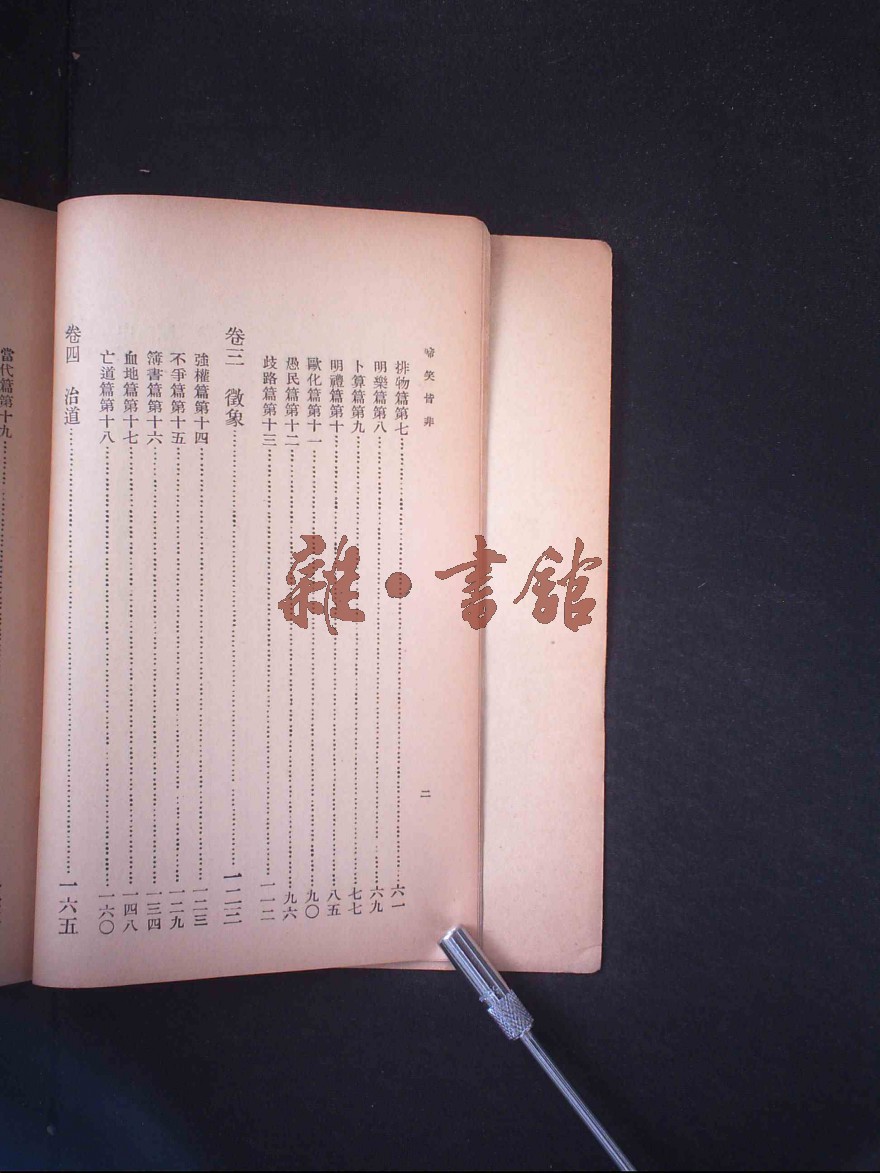 啼笑皆非
二
排物篇第七……六一
明樂篇第八……六九
卜算篇第九……七七
明禮篇第十……八五
歐化篇第十一……九〇
愚民篇第十二……九六
歧路篇第十三……一一二
卷三　徵象……一二三
強權篇第十四……一二三
不爭篇第十五……一二九
簿書篇第十六……一三四
血地篇第十七……一四八
亡道篇第十八……一六〇
卷四　治道……一六五
當代篇第十九……
雜·書館